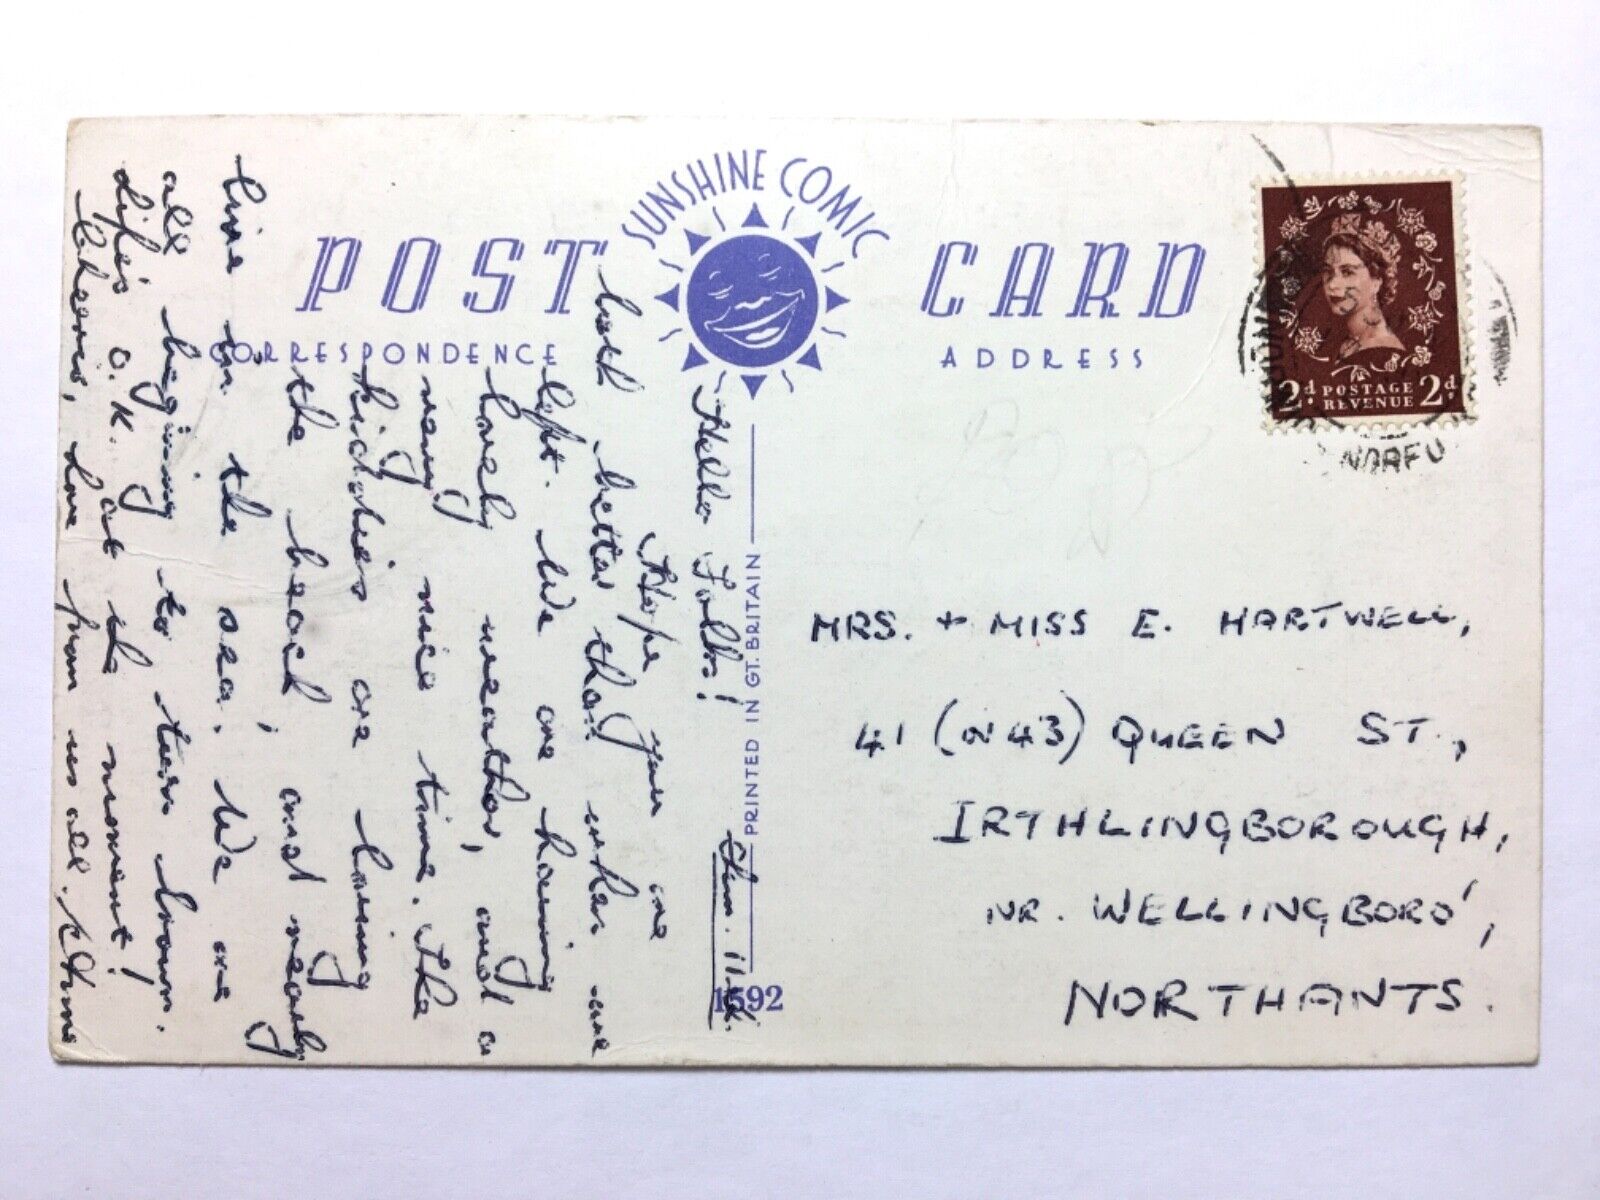 SUNSHINE COMIC
POST CARD
CORRESPONDENCE
ADDRESS
2d POSTAGE REVENUE 2d
NORFO
PRINTED IN GT. BRITAIN
1592
11.
Hello Folks!
Hope you are
both better than when we
left. We are having
lovely weather, and a
very nice time. The
kiddies are loving
the beach, and nearly
live in the sea. We are
all begining to turn brown.
life's o.k. at the moment!
Cheerio, love from us all.
MRS. + MISS E. HARTWELL,
41 (OR 43) QUEEN ST.,
IRTHLINGBOROUGH,
NR. WELLINGBORO',
NORTHANTS.